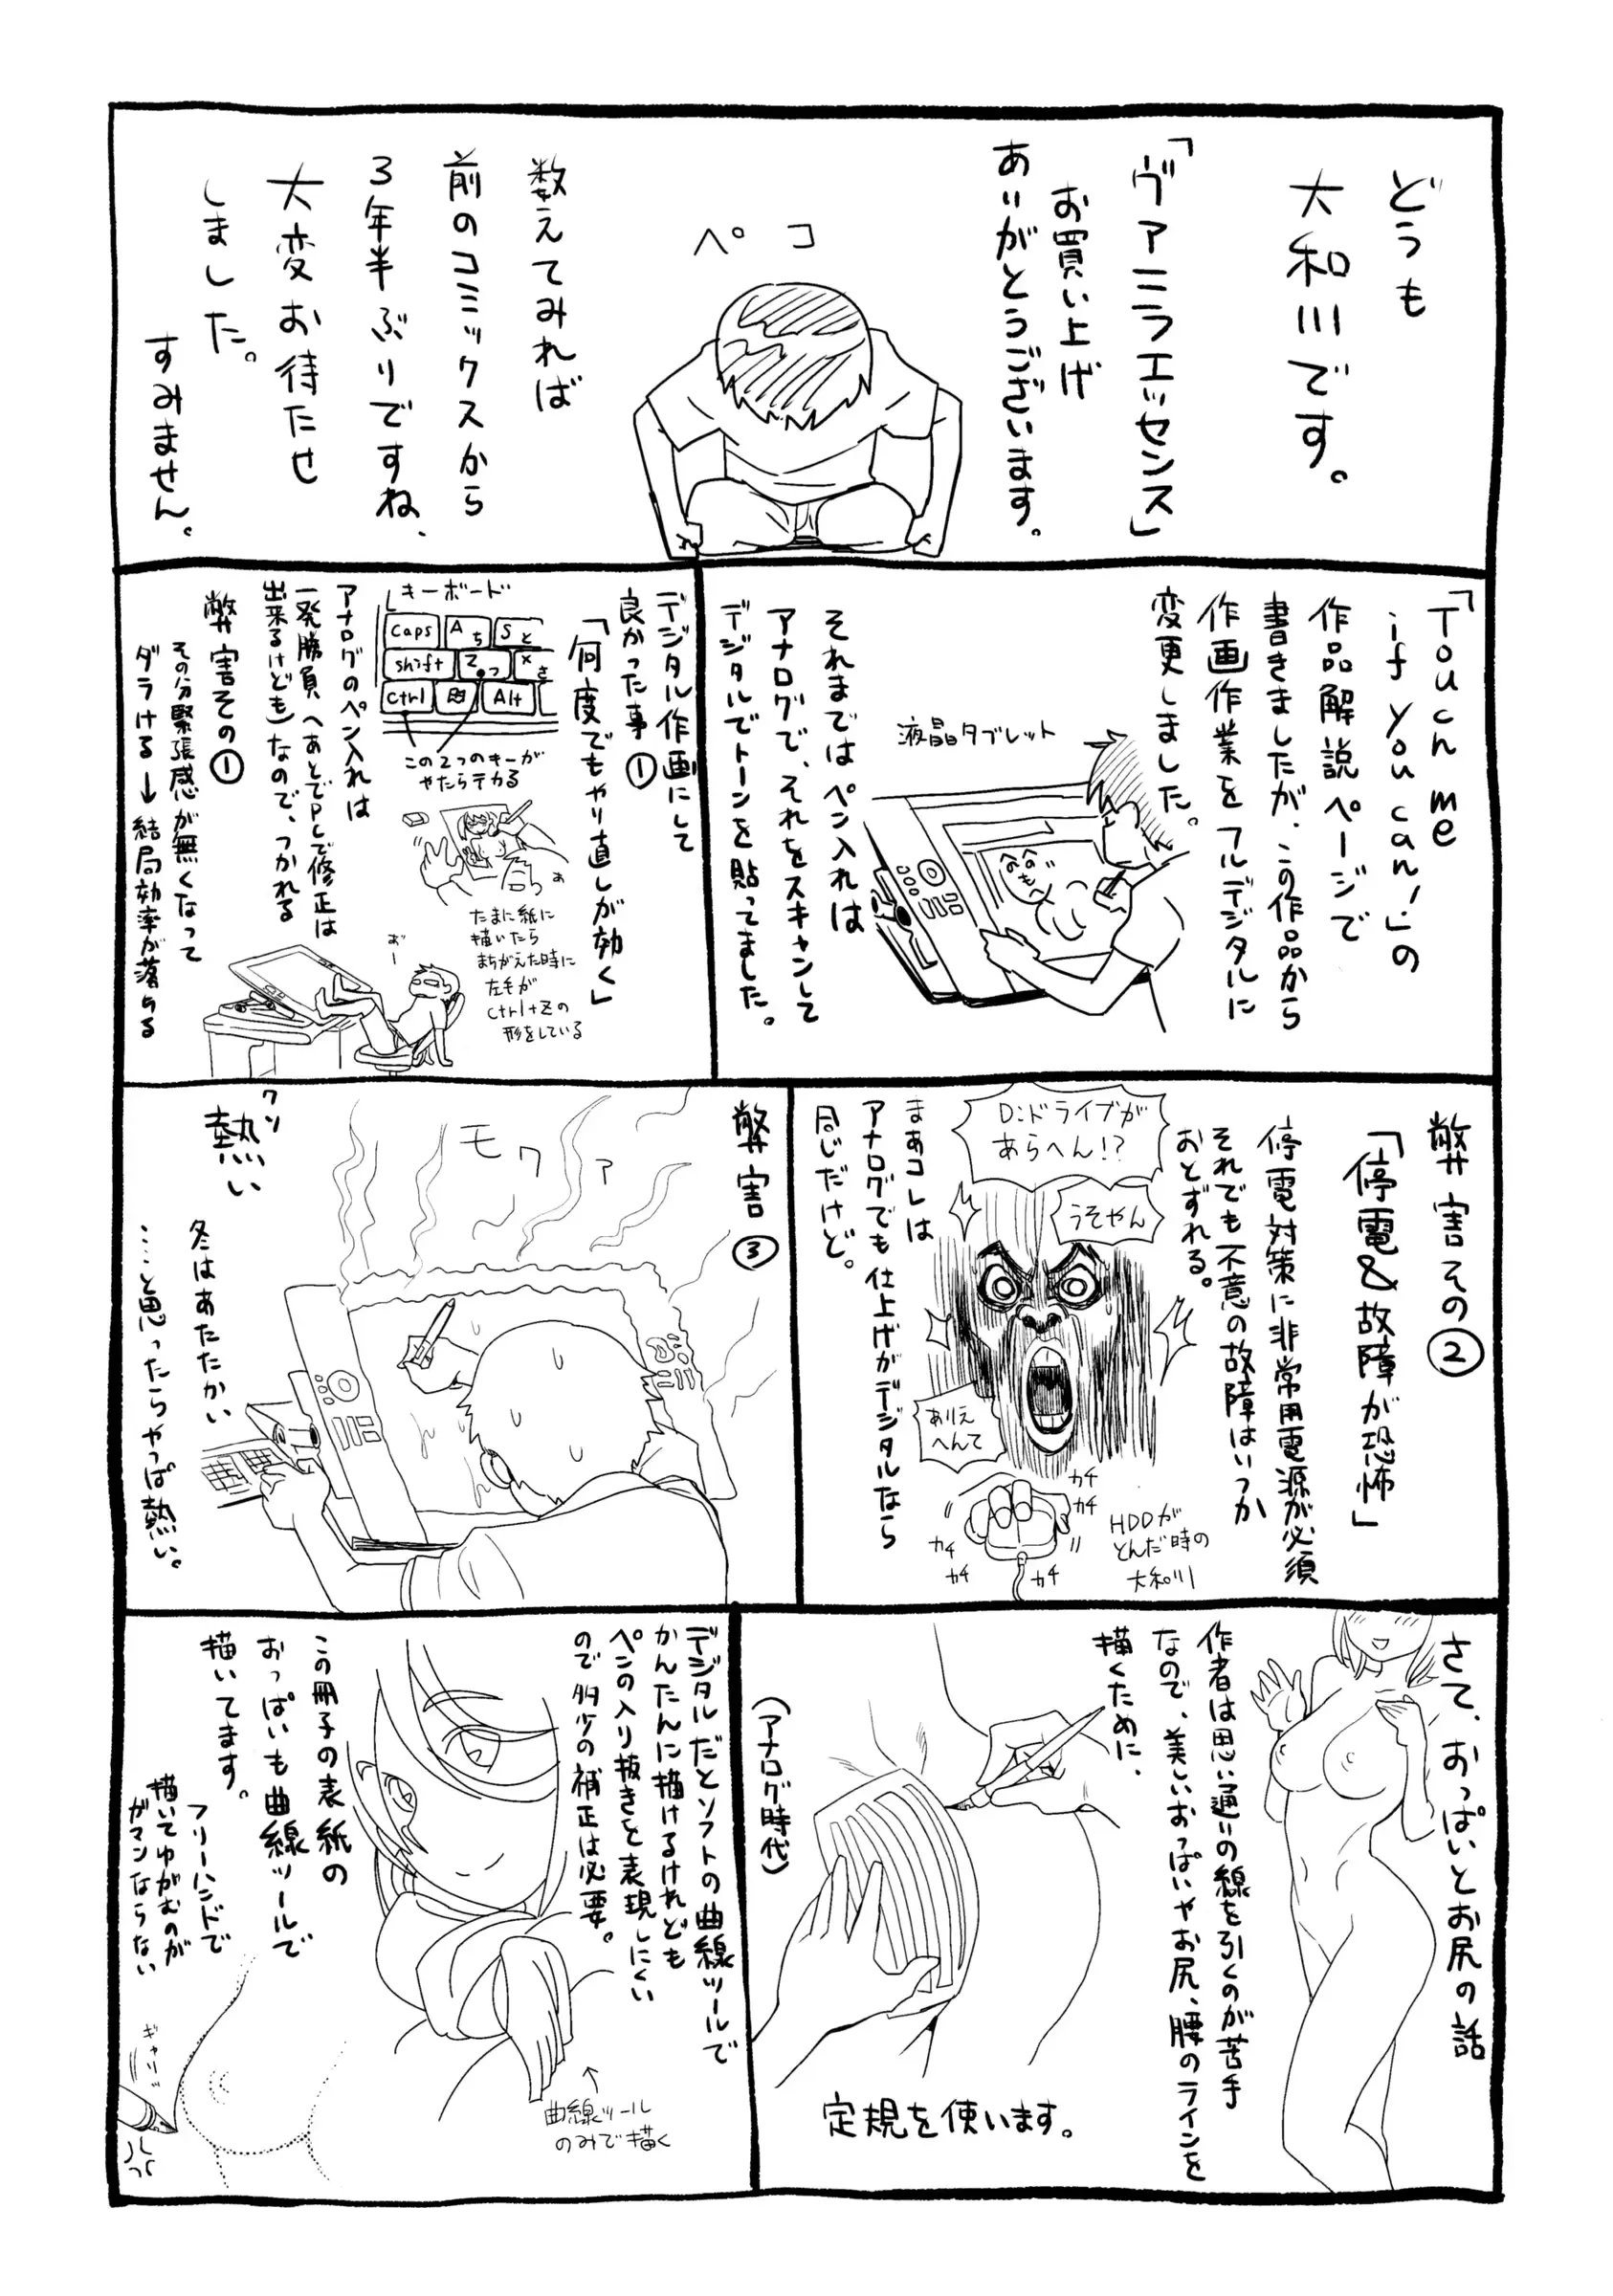 どうも
大和川です。
「ヴァニラエッセンス」
お買い上げ
ありがとうございます。
ペコ
数えてみれば
前のコミックスから
3年半ぶりですね、
大変お待たせ
しました。
すみません。
「Touch me
if you can!」の
作品解説ページで
書きましたが、この作品から
作画作業をフルデジタルに
変更しました。
液晶タブレット
それまではペン入れは
アナログで、それをスキャンして
デジタルでトーンを貼ってました。
デジタル作画にして
良かった事①
「何度でもやり直しが効く」
キーボード
Caps
A
ち
S
と
shift
Z
っ
X
さ
ctrl
Alt
この2つのキーが
やたらテカる
たまに紙に
描いたら
まちがえた時に
左手が
ctrl+Zの
形をしている
アナログのペン入れは
一発勝負(あとでPCで修正は
出来るけども)なので、つかれる
弊害その①
その分緊張感が無くなって
ダラける→結局効率が落ちる
弊害その②
「停電&故障が恐怖」
停電対策に非常用電源が必須
それでも不意の故障はいつか
おとずれる。
D:ドライブが
あらへん!?
うそやん
ありえ
へんて
カチ
カチ
カチ
カチ
カチ
HDDが
とんだ時の
大和川
まあコレは
アナログでも仕上げがデジタルなら
同じだけど。
弊害③
モワァ
クソ
熱い
冬はあたたかい
……と思ったらやっぱ熱い。
さて、おっぱいとお尻の話
作者は思い通りの線を引くのが苦手
なので、美しいおっぱいやお尻、腰のラインを
描くために、
(アナログ時代)
定規を使います。
デジタルだとソフトの曲線ツールで
かんたんに描けるけれども
ペンの入り抜きを表現しにくい
ので多少の補正は必要。
この冊子の表紙の
おっぱいも曲線ツールで
描いてます。
フリーハンドで
描いてゆがむのが
ガマンならない
↑
曲線ツール
のみで描く
ギャリッ